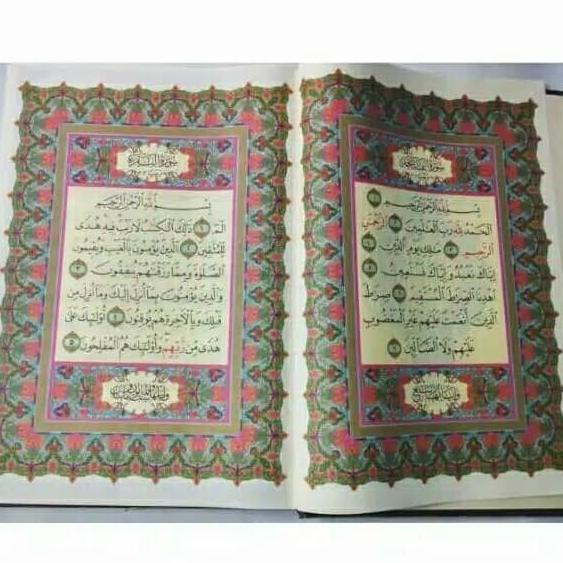 سورة الفاتحة
بسم الله الرحمن الرحيم
الحمد لله رب العلمين الرحمن
الرحيم ملك يوم الدين
إياك نعبد وإياك نستعين
اهدنا الصرط المستقيم صرط
الذين أنعمت عليهم غير المغضوب
عليهم ولا الضالين
سورة البقرة
بسم الله الرحمن الرحيم
الم ذلك الكتب لا ريب فيه هدى
للمتقين الذين يؤمنون بالغيب ويقيمون
الصلوة ومما رزقنهم ينفقون
والذين يؤمنون بما أنزل إليك وما أنزل من
قبلك وبالآخرة هم يوقنون أولئك على
هدى من ربهم وأولئك هم المفلحون